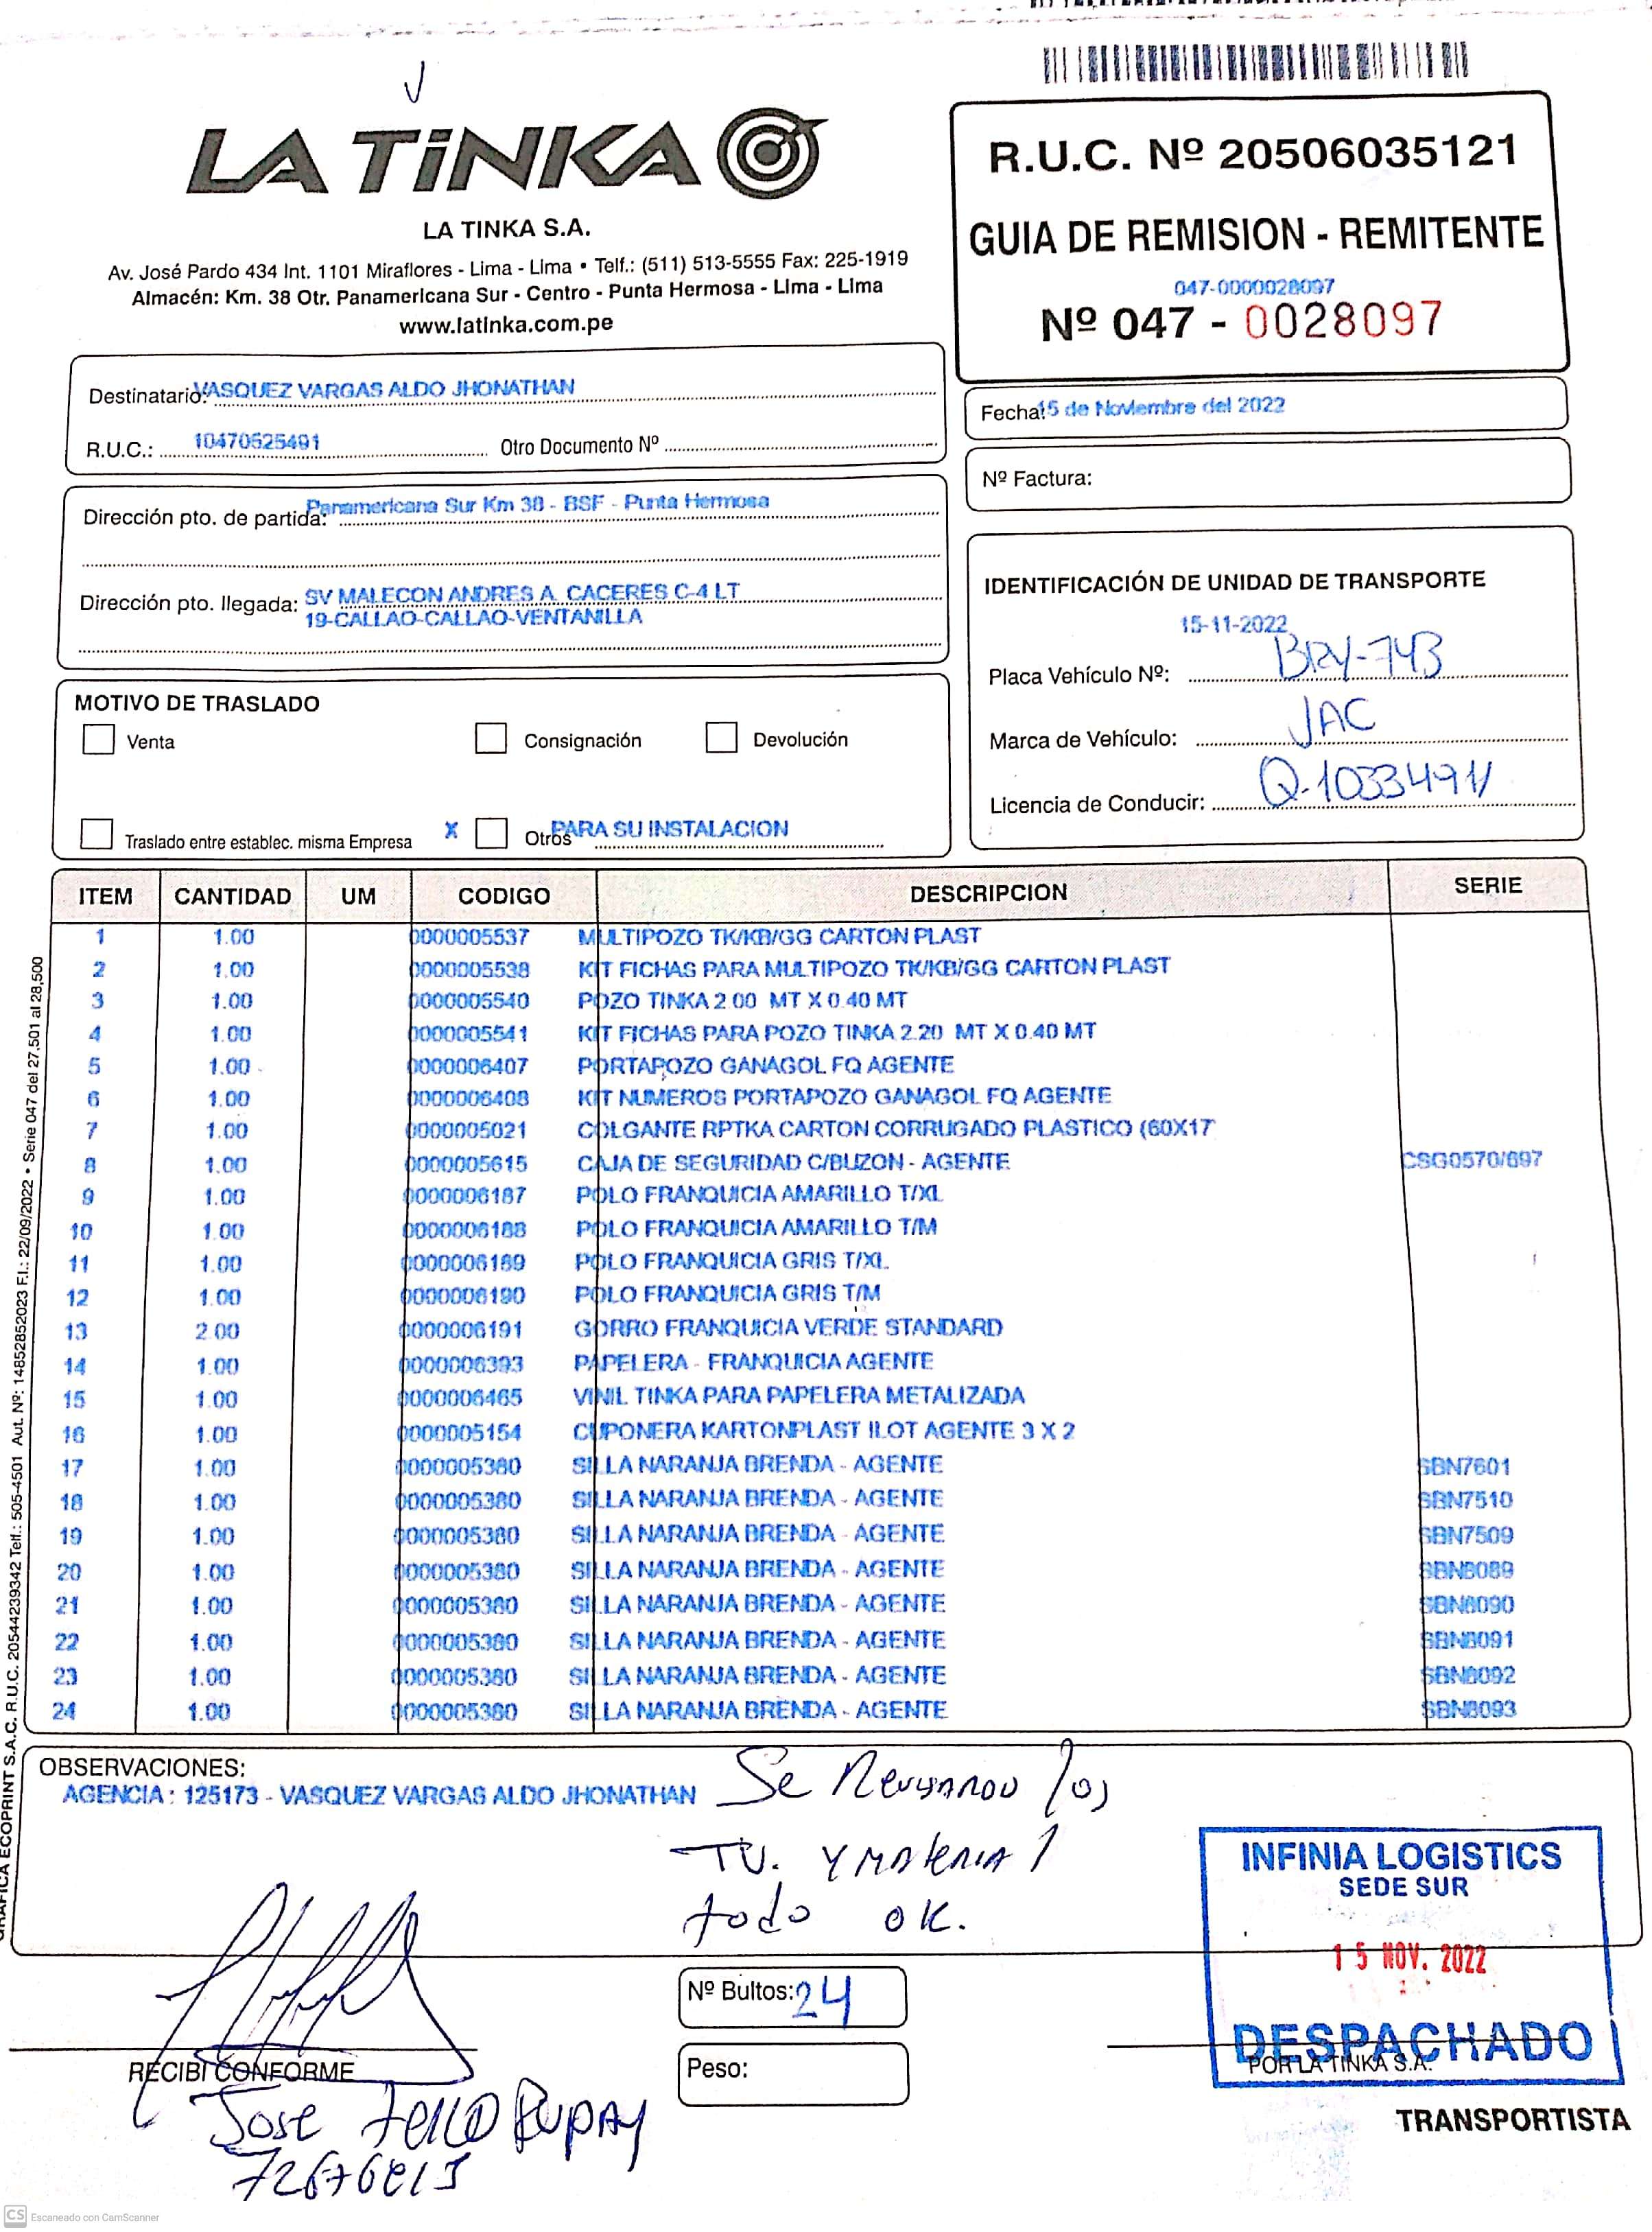 LA TiNKA
LA TINKA S.A.
Av. José Pardo 434 Int. 1101 Miraflores - Lima - Lima • Telf.: (511) 513-5555 Fax: 225-1919
Almacén: Km. 38 Otr. Panamericana Sur - Centro - Punta Hermosa - Lima - Lima
www.latinka.com.pe
R.U.C. Nº 20506035121
GUIA DE REMISION - REMITENTE
047-0000028097
Nº 047 - 0028097
Destinatario: VASQUEZ VARGAS ALDO JHONATHAN
R.U.C.: 10470525491 Otro Documento Nº
Fecha: 15 de Noviembre del 2022
Nº Factura:
Dirección pto. de partida: Panamericana Sur Km 38 - BSF - Punta Hermosa
Dirección pto. llegada: SV MALECON ANDRES A. CACERES C-4 LT
19-CALLAO-CALLAO-VENTANILLA
IDENTIFICACIÓN DE UNIDAD DE TRANSPORTE
15-11-2022
Placa Vehículo Nº: BRY-743
Marca de Vehículo: JAC
Licencia de Conducir:
MOTIVO DE TRASLADO
Venta Consignación Devolución
Traslado entre establec. misma Empresa X Otros PARA SU INSTALACION
ITEM CANTIDAD UM CODIGO DESCRIPCION SERIE
1 1.00 0000005537 MULTIPOZO TK/KB/GG CARTON PLAST
2 1.00 0000005538 KIT FICHAS PARA MULTIPOZO TK/KB/GG CARTON PLAST
3 1.00 0000005540 POZO TINKA 2.00 MT X 0.40 MT
4 1.00 0000005541 KIT FICHAS PARA POZO TINKA 2.20 MT X 0.40 MT
5 1.00 0000006407 PORTAPOZO GANAGOL FQ AGENTE
6 1.00 0000006408 KIT NUMEROS PORTAPOZO GANAGOL FQ AGENTE
7 1.00 0000005021 COLGANTE RPTKA CARTON CORRUGADO PLASTICO (60X17
8 1.00 0000005615 CAJA DE SEGURIDAD C/BUZON - AGENTE CSG0570/697
9 1.00 0000006187 POLO FRANQUICIA AMARILLO T/XL
10 1.00 0000006188 POLO FRANQUICIA AMARILLO T/M
11 1.00 0000006189 POLO FRANQUICIA GRIS T/XL
12 1.00 0000006190 POLO FRANQUICIA GRIS T/M
13 2.00 0000006191 GORRO FRANQUICIA VERDE STANDARD
14 1.00 0000006393 PAPELERA - FRANQUICIA AGENTE
15 1.00 0000006465 VINIL TINKA PARA PAPELERA METALIZADA
16 1.00 0000005154 CUPONERA KARTONPLAST ILOT AGENTE 3 X 2
17 1.00 0000005380 SILLA NARANJA BRENDA - AGENTE SBN7601
18 1.00 0000005380 SILLA NARANJA BRENDA - AGENTE SBN7510
19 1.00 0000005380 SILLA NARANJA BRENDA - AGENTE SBN7509
20 1.00 0000005380 SILLA NARANJA BRENDA - AGENTE SBN8089
21 1.00 0000005380 SILLA NARANJA BRENDA - AGENTE SBN8090
22 1.00 0000005380 SILLA NARANJA BRENDA - AGENTE SBN8091
23 1.00 0000005380 SILLA NARANJA BRENDA - AGENTE SBN8092
24 1.00 0000005380 SILLA NARANJA BRENDA - AGENTE SBN8093
R.U.C. 20544239342 Telf.: 505-4501 Aut. Nº: 14852852023 F.I.: 22/09/2022 • Serie 047 del 27,501 al 28,500
GRAFICA ECOPRINT S.A.C.
OBSERVACIONES:
AGENCIA : 125173 - VASQUEZ VARGAS ALDO JHONATHAN
Se los
TV. y material
todo OK.
INFINIA LOGISTICS
SEDE SUR
15 NOV. 2022
DESPACHADO
Nº Bultos: 24
Peso:
RECIBI CONFORME
POR LA TINKA S.A.
Jose
TRANSPORTISTA
CS Escaneado con CamScanner